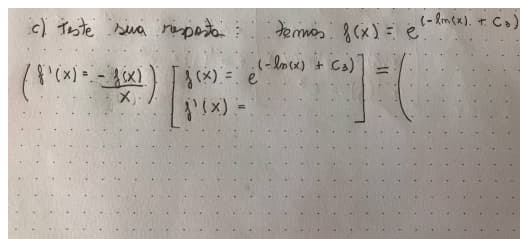 c) Teste sua resposta: temos f(x) = e^(-ln(x) + C₃)
(f'(x) = -f(x)/x) [f(x) = e^(-ln(x) + C₃)
f'(x) = ] = (